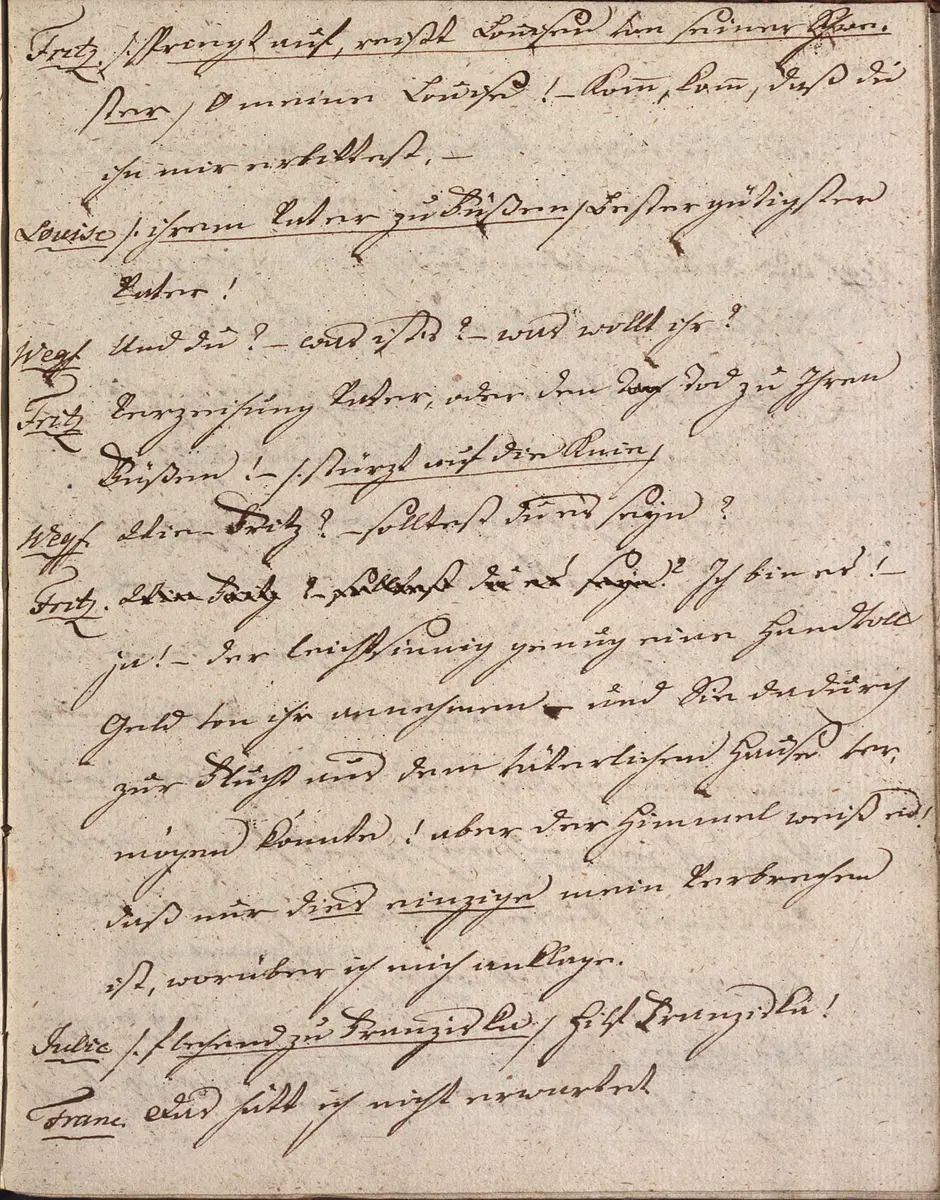 Fritz. /: sprengt auf, reißt Louisen von seiner Schwe-
ster / O meine Louise! – Komm, komm, daß du
ihn mir erbittest. –
Louise /: ihrem Vater zu Füßen / Bester gütigster
Vater!
Wegf. Und du? – was ist's? – was wollt ihr?
Fritz Verzeihung Vater, oder den Tod zu Ihren
Füßen! – /: stürzt auf die Knie /
Wegf. Wie – Fritz? – solltest du es seyn?
Fritz. Wie Fritz? – solltest du es seyn? Ich bin es! –
ja! – der leichtsinnig genug eine Handvoll
Geld von ihr annehmen – und Sie dadurch
zur Flucht aus dem väterlichen Hause ver-
mögen konnte! aber der Himmel weiß es!
daß nur dies einzige mein Verbrechen
ist, worüber ich mich anklage.
Julie /: flehend zu Franziska / Hilf Franziska!
Franc. Das hätt ich nicht erwartet